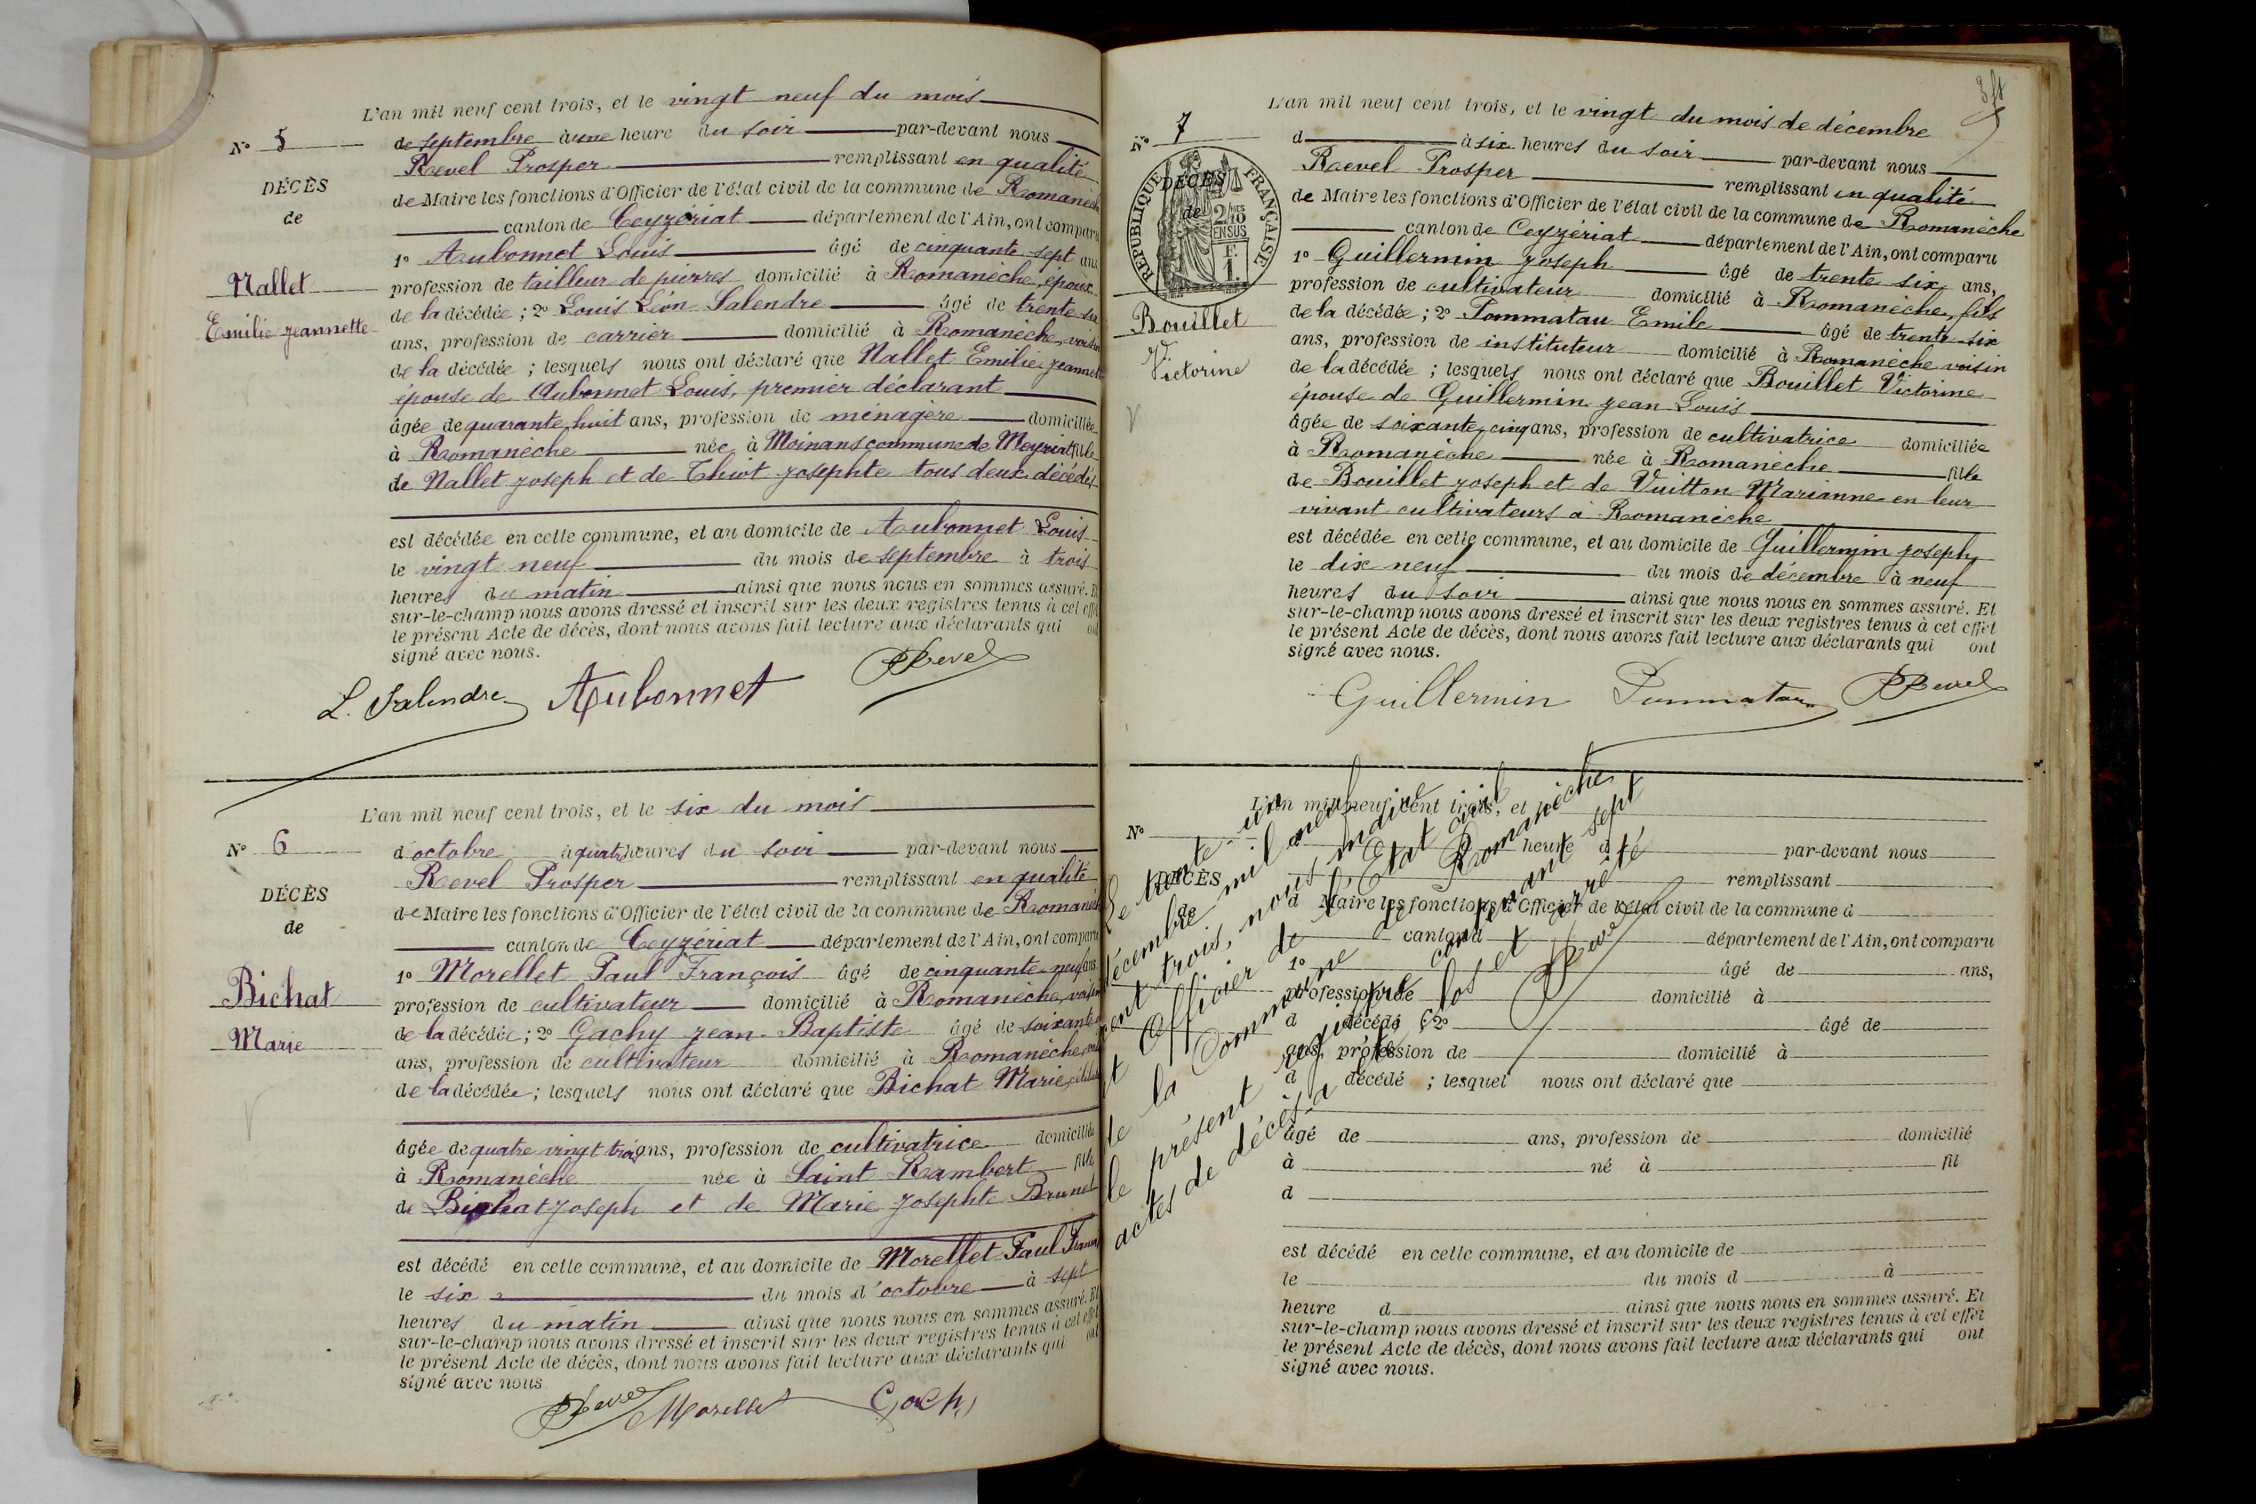 L'an mil neuf cent trois, et le vingt neuf du mois
N° 5
de septembre à une heure du soir par-devant nous
Revel Prosper remplissant en qualité
DÉCÈS
de Maire les fonctions d'Officier de l'état civil de la commune de Romanèche
de
canton de Ceyzériat département de l'Ain, ont comparu
1° Aubonnet Louis âgé de cinquante sept ans
Nallet
profession de tailleur de pierres domicilié à Romanèche, époux
de la décédée ; 2° Louis Léon Salendre âgé de trente six
Emilie Jeannette
ans, profession de carrier domicilié à Romanèche, voisin
de la décédée ; lesquels nous ont déclaré que Nallet Emilie Jeannette
épouse de Aubonnet Louis, premier déclarant
âgée de quarante huit ans, profession de ménagère domiciliée
à Romanèche née à Moinans commune de Meyriat fille
de Nallet Joseph et de Thiot Josephte tous deux décédés
est décédée en cette commune, et au domicile de Aubonnet Louis
le vingt neuf du mois de septembre à trois
heures du matin ainsi que nous nous en sommes assuré. Et
sur-le-champ nous avons dressé et inscrit sur les deux registres tenus à cet effet
le présent Acte de décès, dont nous avons fait lecture aux déclarants qui ont
signé avec nous.
L. Salendre Aubonnet PRevel
L'an mil neuf cent trois, et le six du mois
N° 6
d'octobre à quatre heures du soir par-devant nous
Revel Prosper remplissant en qualité
DÉCÈS
de Maire les fonctions d'Officier de l'état civil de la commune de Romanèche
de
canton de Ceyzériat département de l'Ain, ont comparu
1° Morellet Paul François âgé de cinquante neuf ans
Bichat
profession de cultivateur domicilié à Romanèche, voisin
de la décédée ; 2° Gachy Jean-Baptiste âgé de soixante
Marie
ans, profession de cultivateur domicilié à Romanèche
de la décédée ; lesquels nous ont déclaré que Bichat Marie
âgée de quatre vingt trois ans, profession de cultivatrice domiciliée
à Romanèche née à Saint Rambert fille
de Bichat Joseph et de Marie Josephte Brunet
est décédé en cette commune, et au domicile de Morellet Paul François
le six du mois d'octobre à sept
heures du matin ainsi que nous nous en sommes assuré. Et
sur-le-champ nous avons dressé et inscrit sur les deux registres tenus à cet effet
le présent Acte de décès, dont nous avons fait lecture aux déclarants qui ont
signé avec nous
PRevel Morellet Gachy
L'an mil neuf cent trois, et le vingt du mois de décembre
N° 7
d à six heures du soir par-devant nous
Revel Prosper remplissant en qualité
RÉPUBLIQUE FRANÇAISE
2/10 EN SUS
F. 1.
DÉCÈS
de Maire les fonctions d'Officier de l'état civil de la commune de Romanèche
de
canton de Ceyzériat département de l'Ain, ont comparu
1° Guillermin Joseph âgé de trente six ans,
profession de cultivateur domicilié à Romanèche, fils
Bouillet
de la décédée ; 2° Pommatau Emile âgé de trente-six
ans, profession de instituteur domicilié à Romanèche voisin
Victorine
de la décédée ; lesquels nous ont déclaré que Bouillet Victorine
épouse de Guillermin Jean-Louis
âgée de soixante cinq ans, profession de cultivatrice domiciliée
à Romanèche née à Romanèche fille
de Bouillet Joseph et de Vuitton Marianne en leur
vivant cultivateurs à Romanèche
est décédée en cette commune, et au domicile de Guillermin Joseph
le dix neuf du mois de décembre à neuf
heures du soir ainsi que nous nous en sommes assuré. Et
sur-le-champ nous avons dressé et inscrit sur les deux registres tenus à cet effet
le présent Acte de décès, dont nous avons fait lecture aux déclarants qui ont
signé avec nous.
Guillermin Pommatau PRevel
L'an mil neuf cent trois, et
N°
heure d par-devant nous
DÉCÈS
remplissant
de
d Maire les fonctions d'Officier de l'état civil de la commune d
canton d département de l'Ain, ont comparu
1° âgé de ans,
profession de domicilié à
d décédé ; 2° âgé de
ans, profession de domicilié à
d décédé ; lesquel nous ont déclaré que
âgé de ans, profession de domicilié
à né à fil
d
est décédé en cette commune, et au domicile de
le du mois d à
heure d ainsi que nous nous en sommes assuré. Et
sur-le-champ nous avons dressé et inscrit sur les deux registres tenus à cet effet
le présent Acte de décès, dont nous avons fait lecture aux déclarants qui ont
signé avec nous.
Le trente-un
décembre mil neuf
cent trois, nous, maire
et Officier de l'Etat civil
de la Commune de Romanèche
le présent registre comprenant sept
actes de décès a été clos et arrêté
PRevel